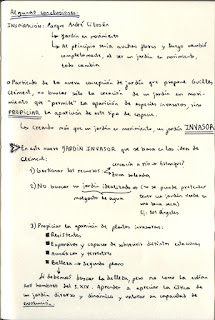 Algunas conclusiones:
INSPIRACIÓN: Parque André Citroën
↳ Jardín en movimiento
↳ Al principio tenía muchas flores y luego cambió
completamente, al ser un jardín en movimiento,
todo cambia.
Partiendo de la nueva concepción de jardín que propone Guilles
Clément, no buscar sólo la creación de un jardín en
movimiento que "permite" la aparición de especies invasoras, sino
PROPICIAR la aparición de este tipo de
Es creando más que un jardín en movimiento, un jardín INVASOR
En este nuevo JARDÍN INVASOR que se basa en las ideas de
Clément:
1) Gestionar los recursos
2) No buscar un jardín idealizado (no se puede pretender
tener un jardín verde en
una zona seca)
malgasto de agua
Ej: Los Ángeles
3) Propiciar la aparición de plantas invasoras:
■ Resistentes
■ Expansivas y capaces de colonizar distintas
■ Acuáticas y terrestres
■ Belleza en segundo plano
Sí debemos buscar la belleza, pero no como la veían
los hombres del S.XIX. Aprender a apreciar la ética de
un jardín diverso y dinámico y valorar su capacidad de